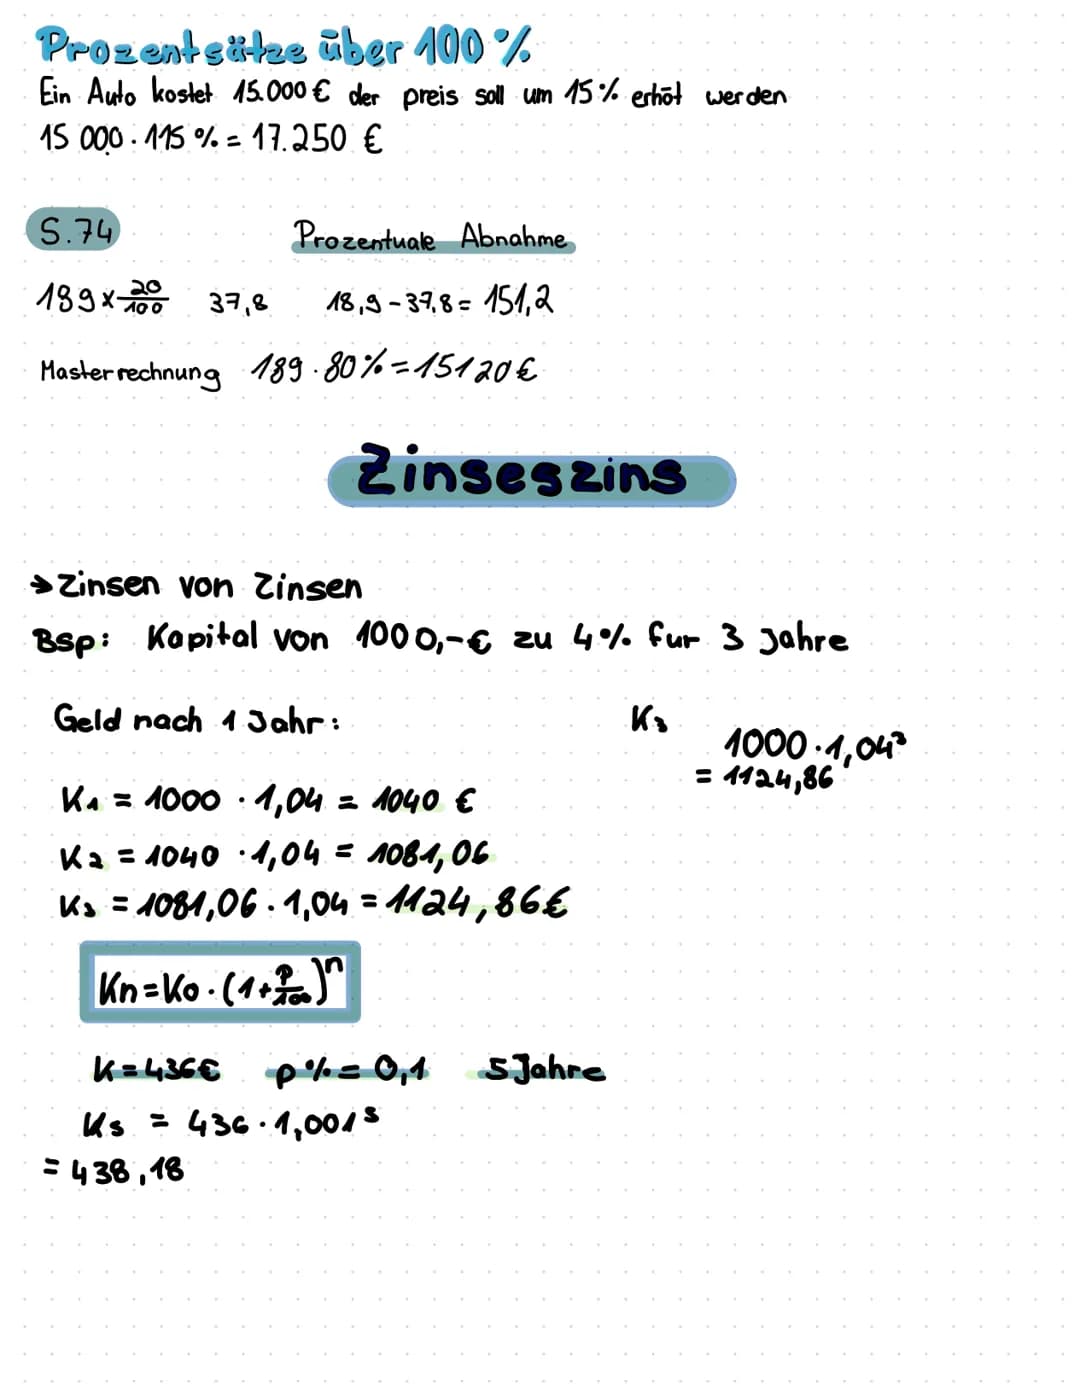 Prozentsätze über 100 %
Ein Auto kostet 15.000 € der preis soll um 15% erhöt werden
15 000 · 115 % = 17.250 €
S.74
Prozentuale Abnahme
189 x 20/100 37,8 18,9 - 37,8 = 151,2
Masterrechnung 189 · 80% = 15120 €
Zinseszins
→ Zinsen von Zinsen
Bsp: Kapital von 1000,-€ zu 4% fur 3 Jahre
Geld nach 1 Jahr:
K₁ = 1000 · 1,04 = 1040 €
K₂ = 1040 · 1,04 = 1081,06
K₃ = 1081,06 · 1,04 = 1124,86€
K₃ 1000 · 1,04³
= 1124,86
Kn = Ko · (1+p/100)ⁿ
K = 436€ p% = 0,1 5 Jahre
K₅ = 436 · 1,001⁵
= 438,18